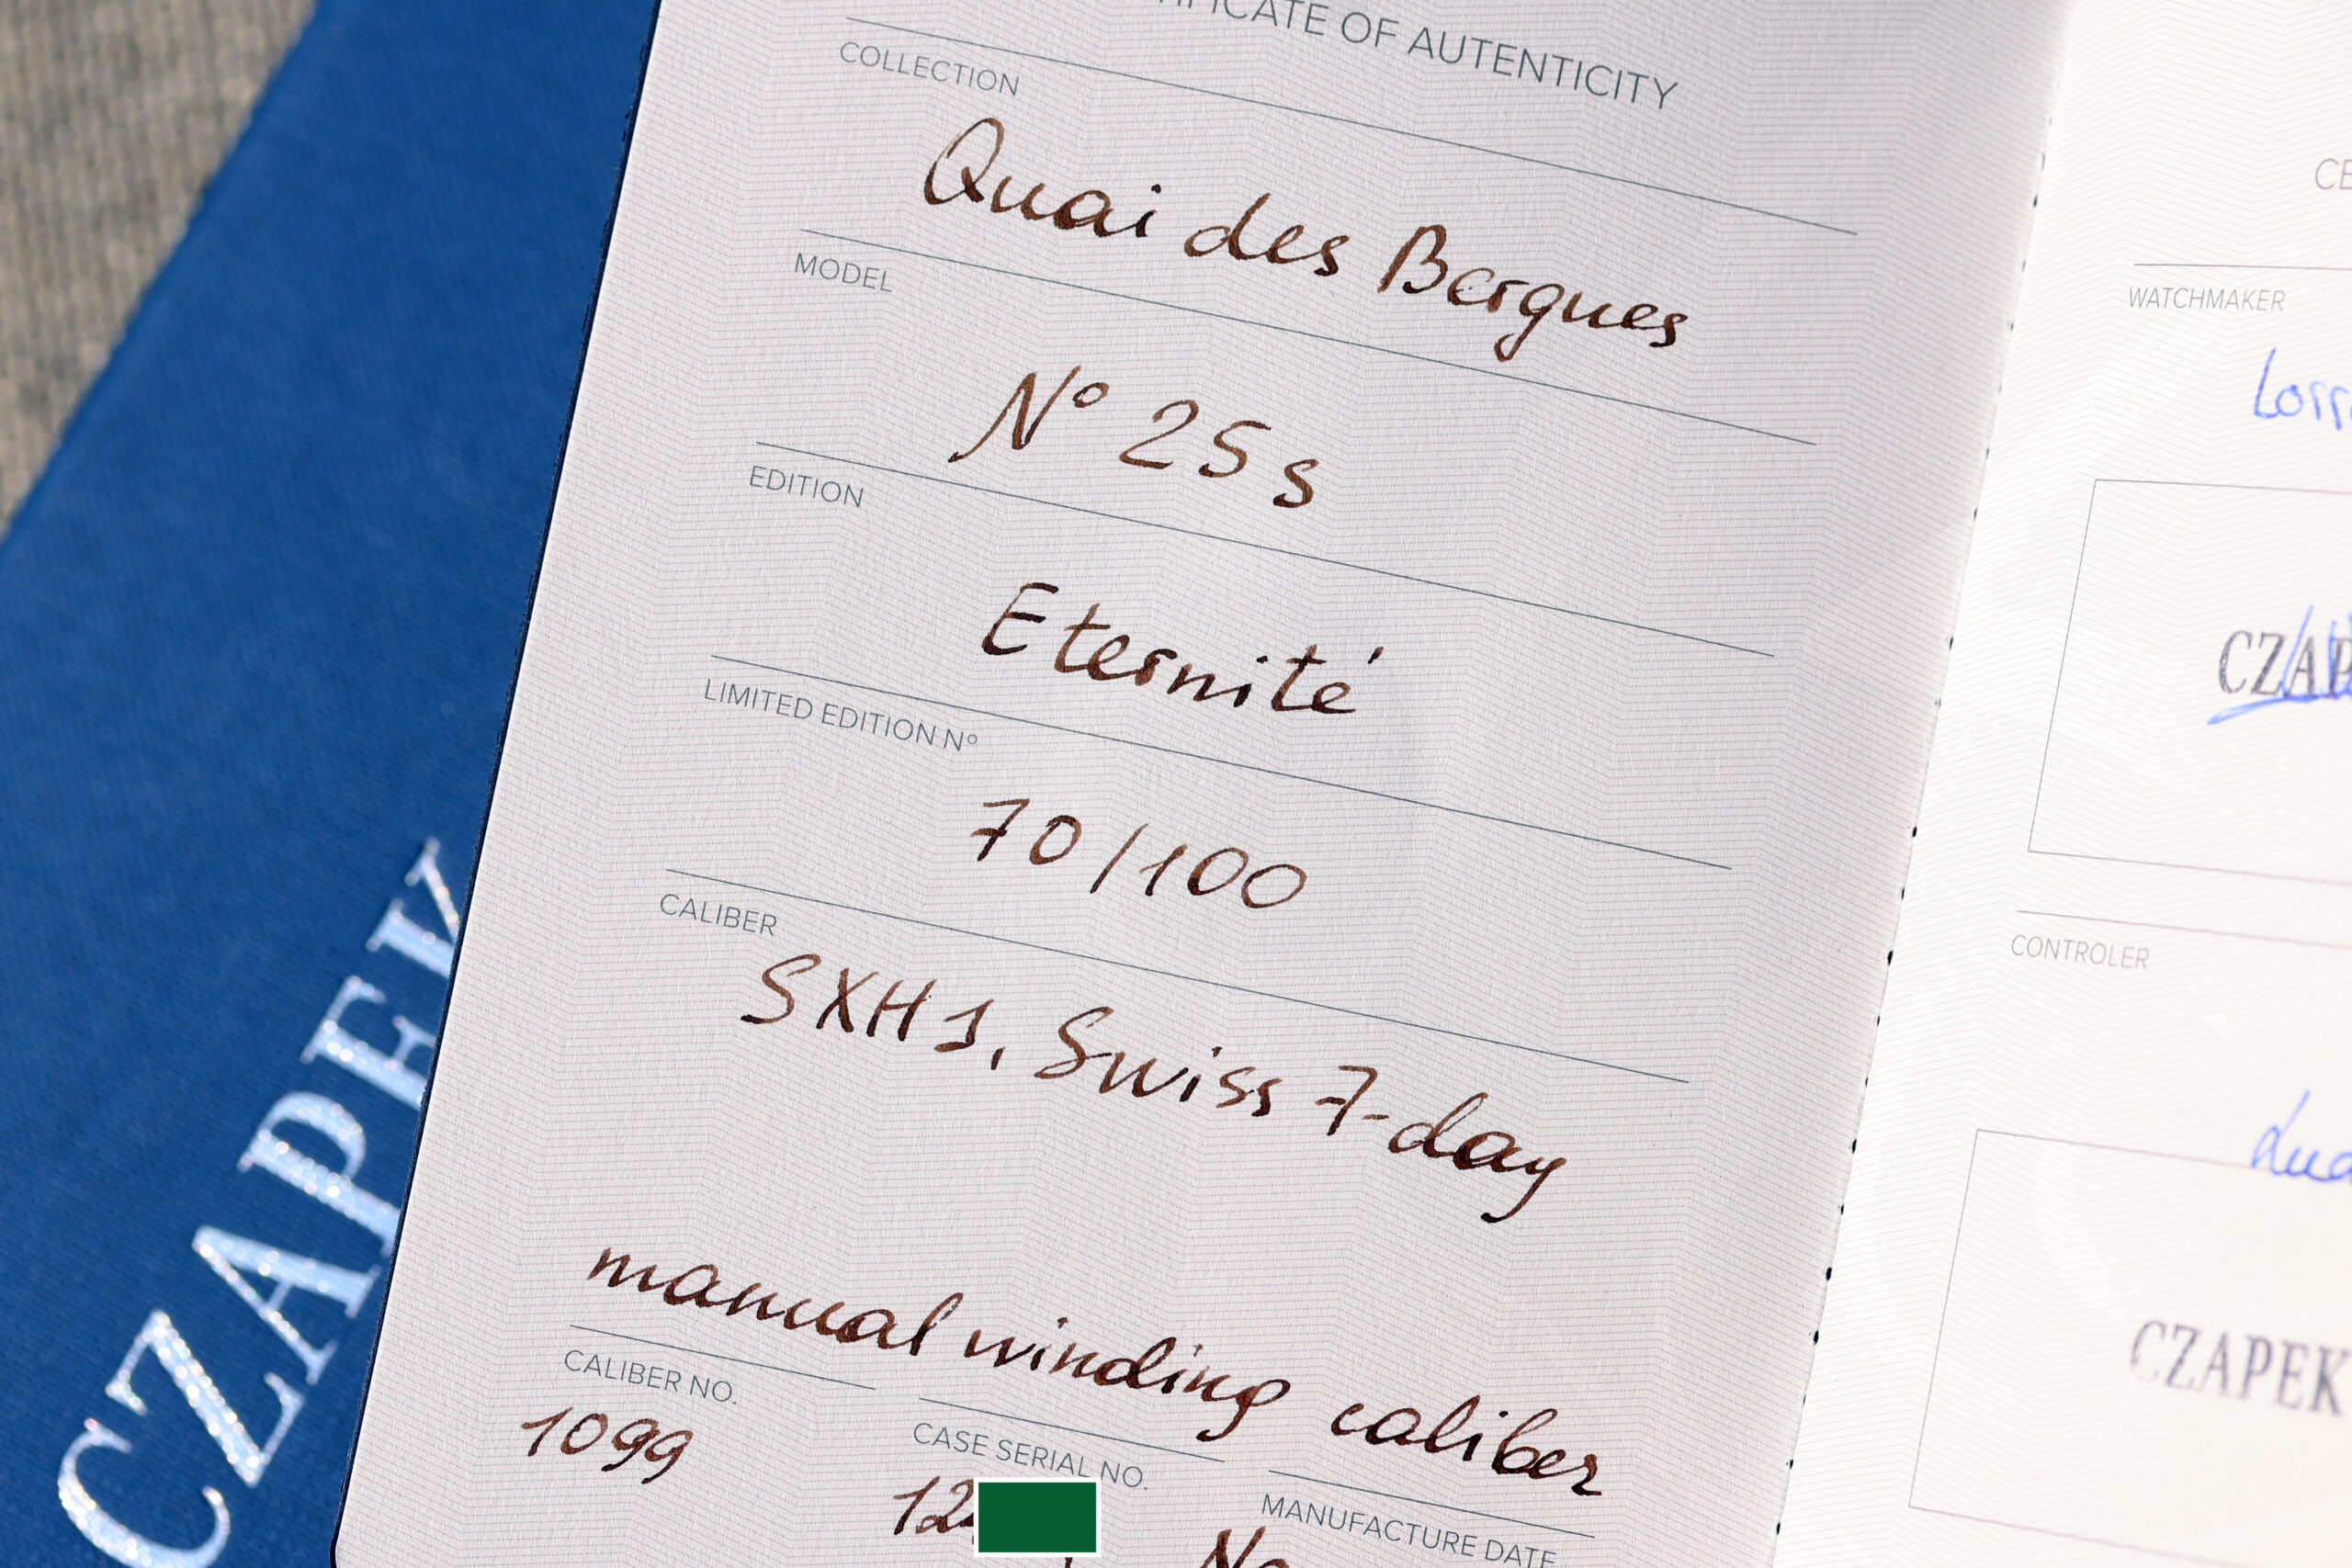 CZAPEK
OF AUTENTICITY
COLLECTION
Quai des Bergues
MODEL
N° 25s
EDITION
Eternité
LIMITED EDITION N°
70/100
CALIBER
SXH1, Swiss 7-day
manual winding caliber
CALIBER NO.
1099
CASE SERIAL NO.
MANUFACTURE DATE
WATCHMAKER
CONTROLER
CZAPEK